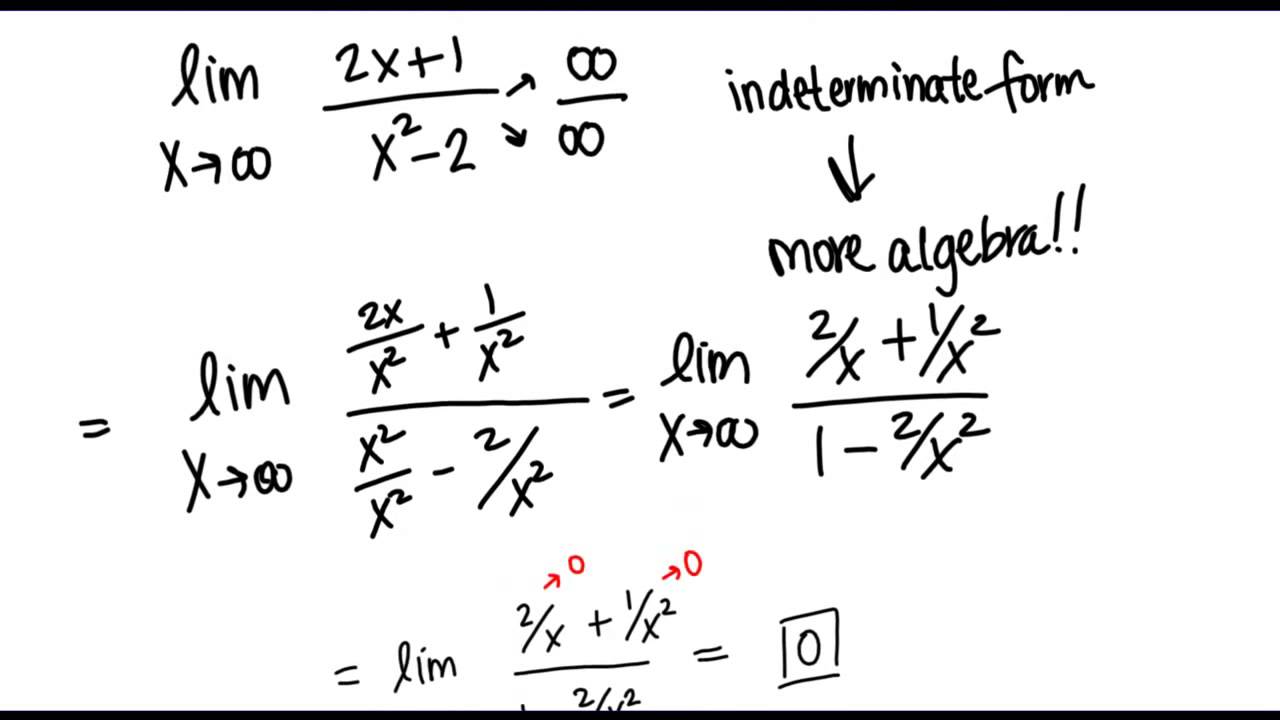 lim x→∞ (2x+1)/(x²-2) →∞/→∞ indeterminate form
↓
more algebra!!
= lim x→∞ (2x/x² + 1/x²)/(x²/x² - 2/x²) = lim x→∞ (2/x + 1/x²)/(1 - 2/x²)
→0 →0
= lim (2/x + 1/x²)/(1 - 2/x²) = 0